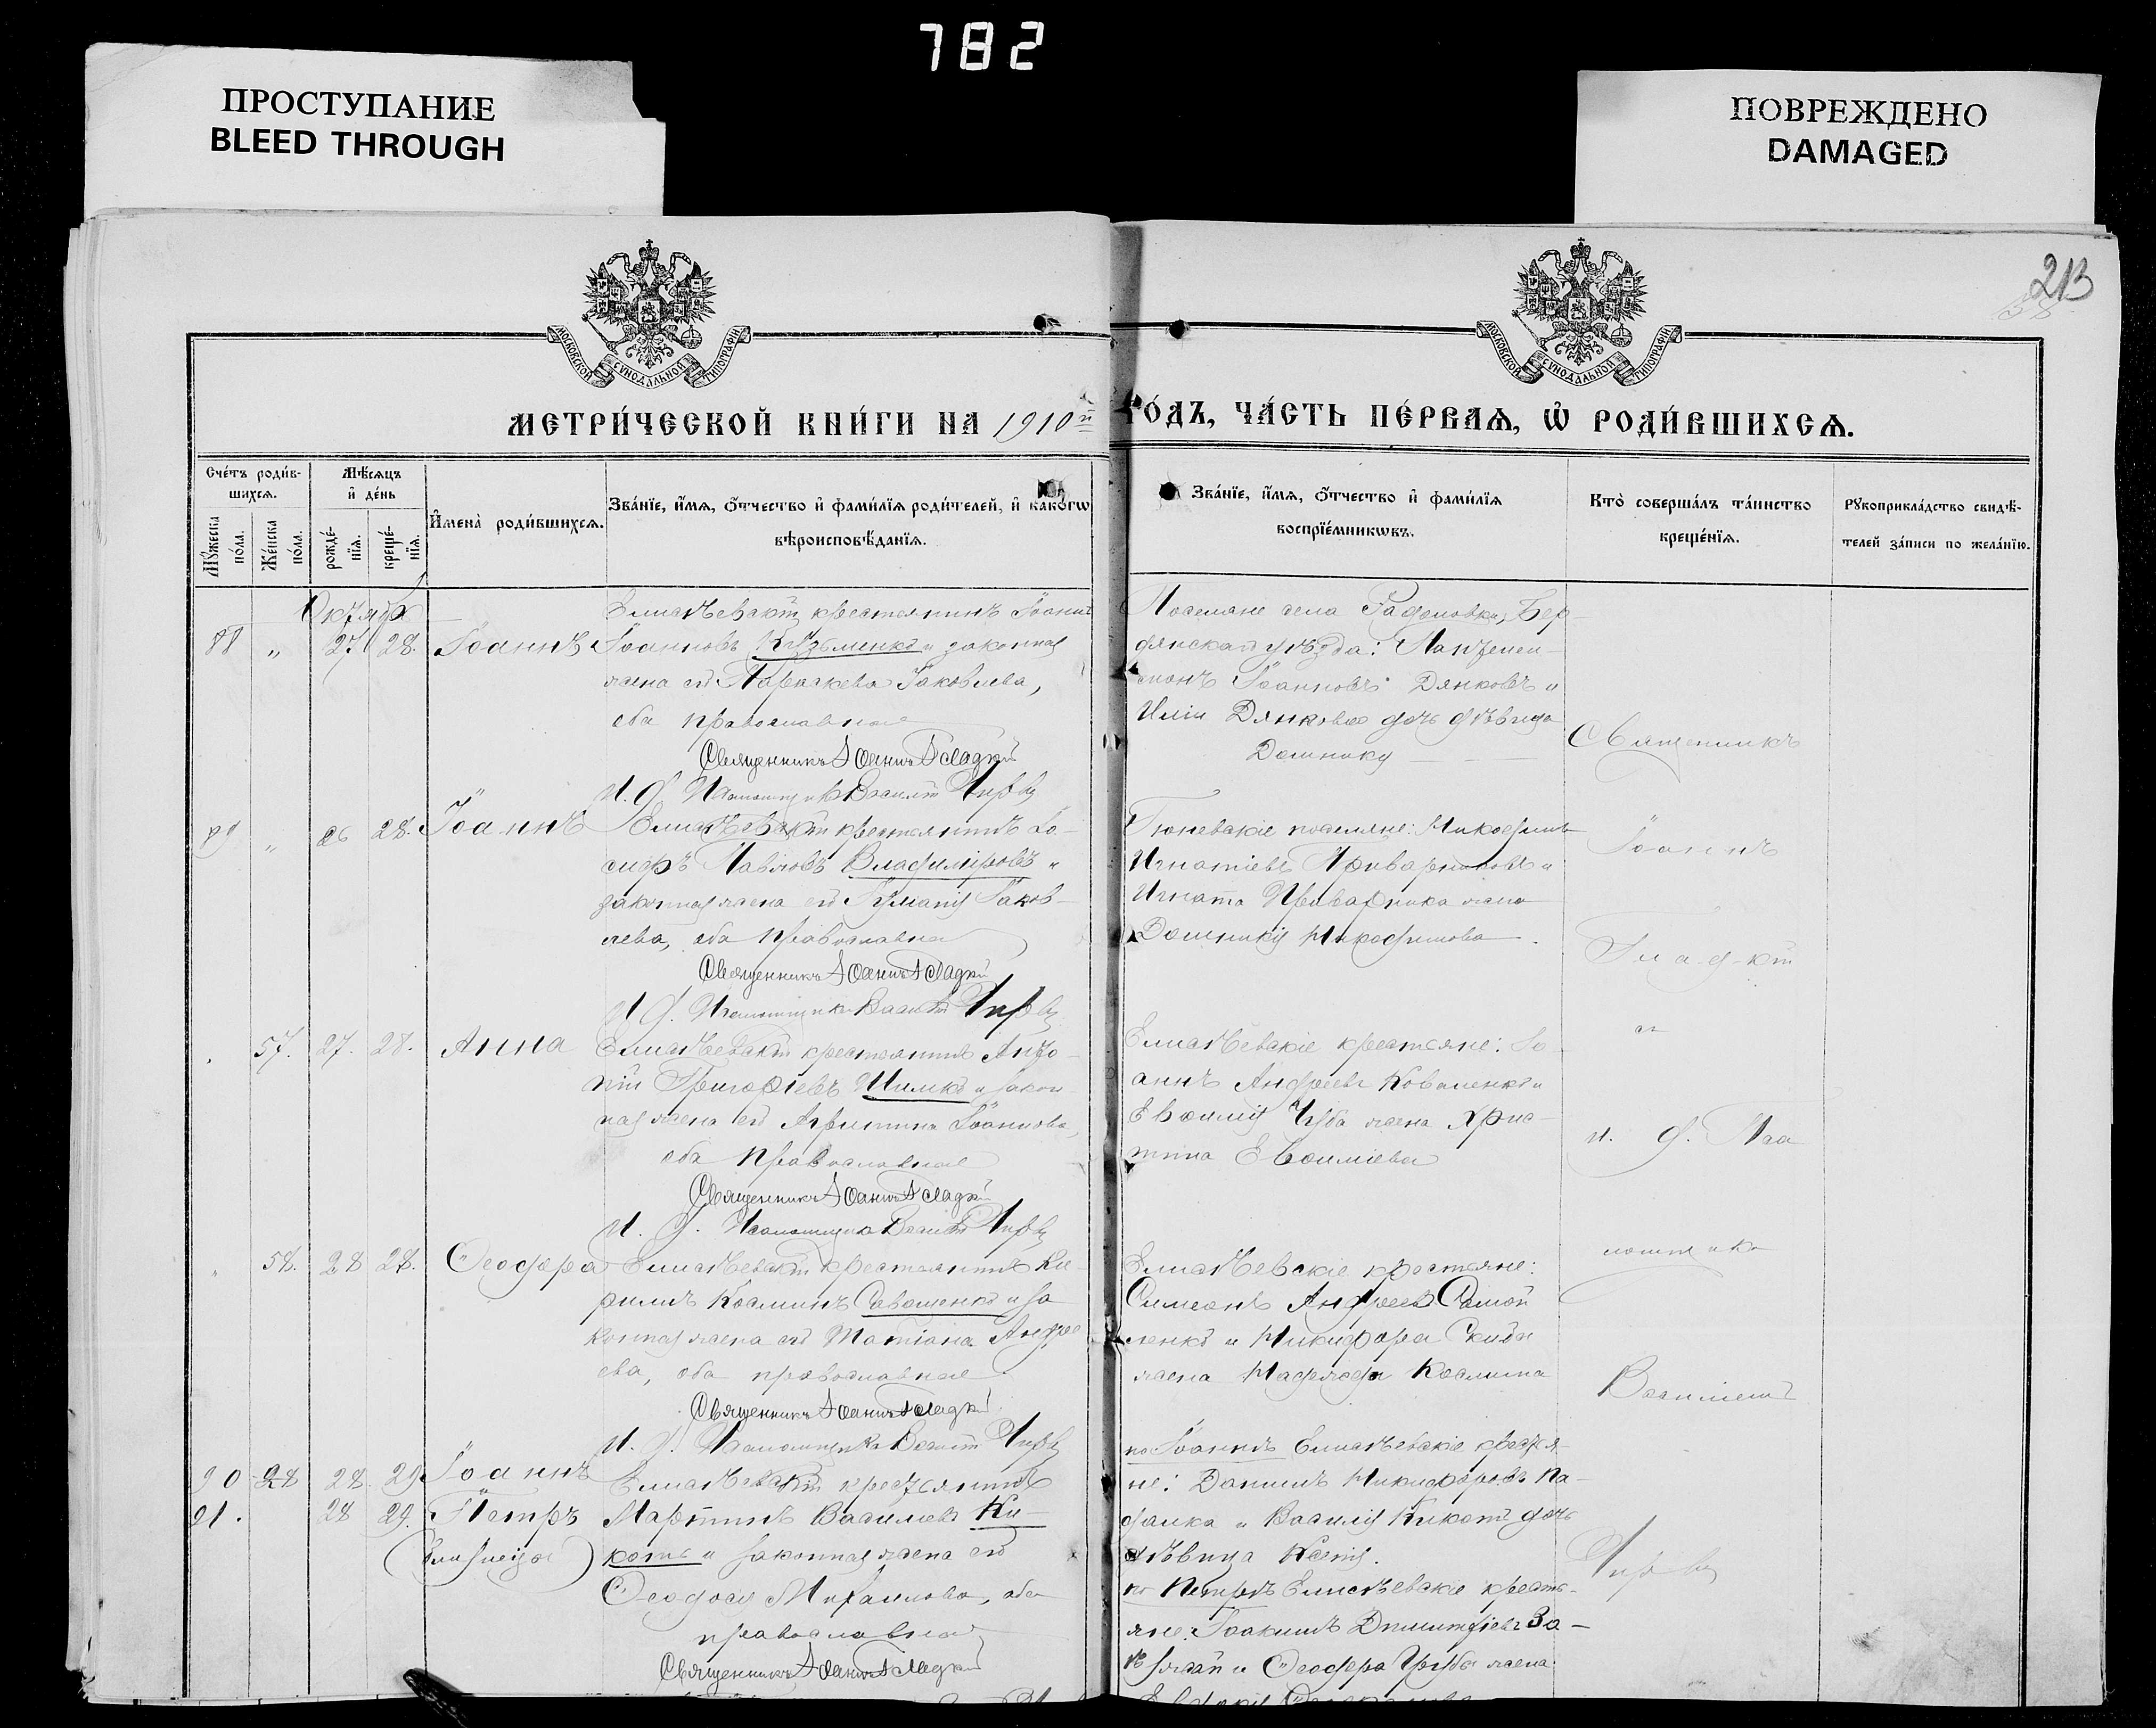 782
ПРОСТУПАНИЕ
BLEED THROUGH
ПОВРЕЖДЕНО
DAMAGED
213
МОСКОВСКОЙ СѴНОДАЛЬНОЙ ТИПОГРАФІИ
МОСКОВСКОЙ СѴНОДАЛЬНОЙ ТИПОГРАФІИ
МЕТРИ́ЧЕСКОЙ КНИ́ГИ НА 1910й ГО́ДЪ, ЧА́СТЬ ПЕ́РВАѦ, Ѡ҆ РОДИ́ВШИХСѦ.
Сче́тъ роди́в-
шихсѧ.
Мꙋжеска по́ла.
Же́нска по́ла.
Мѣ́сѧцъ
и҆ де́нь
рожде́-
нїѧ.
креще́-
нїѧ.
И҆мена̀ роди́вшихсѧ.
Зва́нїе, и҆́мѧ, ѻ҆́тчество и҆ фами́лїѧ роди́телей, и҆ како́гѡ
вѣроисповѣ́данїѧ.
Зва́нїе, и҆́мѧ, ѻ҆́тчество и҆ фами́лїѧ
воспрїе́мникѡвъ.
Кто̀ соверша́лъ та́инство
креще́нїѧ.
Рꙋкоприкла́дство свидѣ́-
телей за́писи по жела́нїю.
Октября
88 " 27 28. Іоаннъ
Елисѣевскій крестьянинъ Іоаннъ
Іоанновъ Кузьменко и законная
жена его Параскева Іаковлева,
оба православные
Священникъ Іоаннъ Гладкій
И. д. Псаломщика Василій
Поселяне села Радоловки, Бер-
дянскаго уѣзда: Пантелеи-
монъ Іоанновъ Дянковъ и
Иліи Дянкова дочь дѣвица
Домникія
89 " 26 28. Іоаннъ
Елисѣевскій крестьянинъ Іо-
сифъ Павловъ Владиміровъ и
законная жена его Іуліанія Іаков-
лева, оба православные
Священникъ Іоаннъ Гладкій
И. д. Псаломщика Василій
Тюневскіе поселяне: Никодимъ
Игнатіевъ Приварниковъ и
Игната Приварника жена
Домникія Никодимова
57. 27. 28. Анна
Елисѣевскій крестьянинъ Анто-
ній Григоріевъ Шимко и закон-
ная жена его Іоаннова,
оба православные
Священникъ Іоаннъ Гладкій
И. д. Псаломщика Василій
Елисѣевскіе крестьяне: Іо-
аннъ Андреевъ Коваленко и
Евѳимія Чуба жена Хрис-
тина Евѳиміева
58. 28 28. Ѳеодора
Елисѣевскій крестьянинъ Ки-
риллъ Косминъ Савощенко и за-
конная жена его Татіана Андре-
ева, оба православные
Священникъ Іоаннъ Гладкій
И. д. Псаломщика Василій
Елисѣевскіе крестьяне:
Симеонъ Андреевъ Самой-
ленко и Никифора Скибы
жена Надежда Космина
90 28 28. 29 Іоаннъ
91. 28 29. Петръ
(близнецы)
Елисѣевскій крестьянинъ
Мартинъ Василіевъ Ки-
коть и законная жена его
Ѳеодосія Михаилова, оба
православные
Священникъ Іоаннъ Гладкій
по Іоаннѣ Елисѣевскіе крестья-
не: Даниилъ Никифоровъ Па-
далка и Василія Кикотя дочь
дѣвица Ксенія.
по Петрѣ Елисѣевскіе кресть-
яне: Іоакимъ Димитріевъ За-
и Ѳеодора жена
Священникъ
Іоаннъ
Гладкій
съ
и. д. Пса
ломщика
Василіемъ